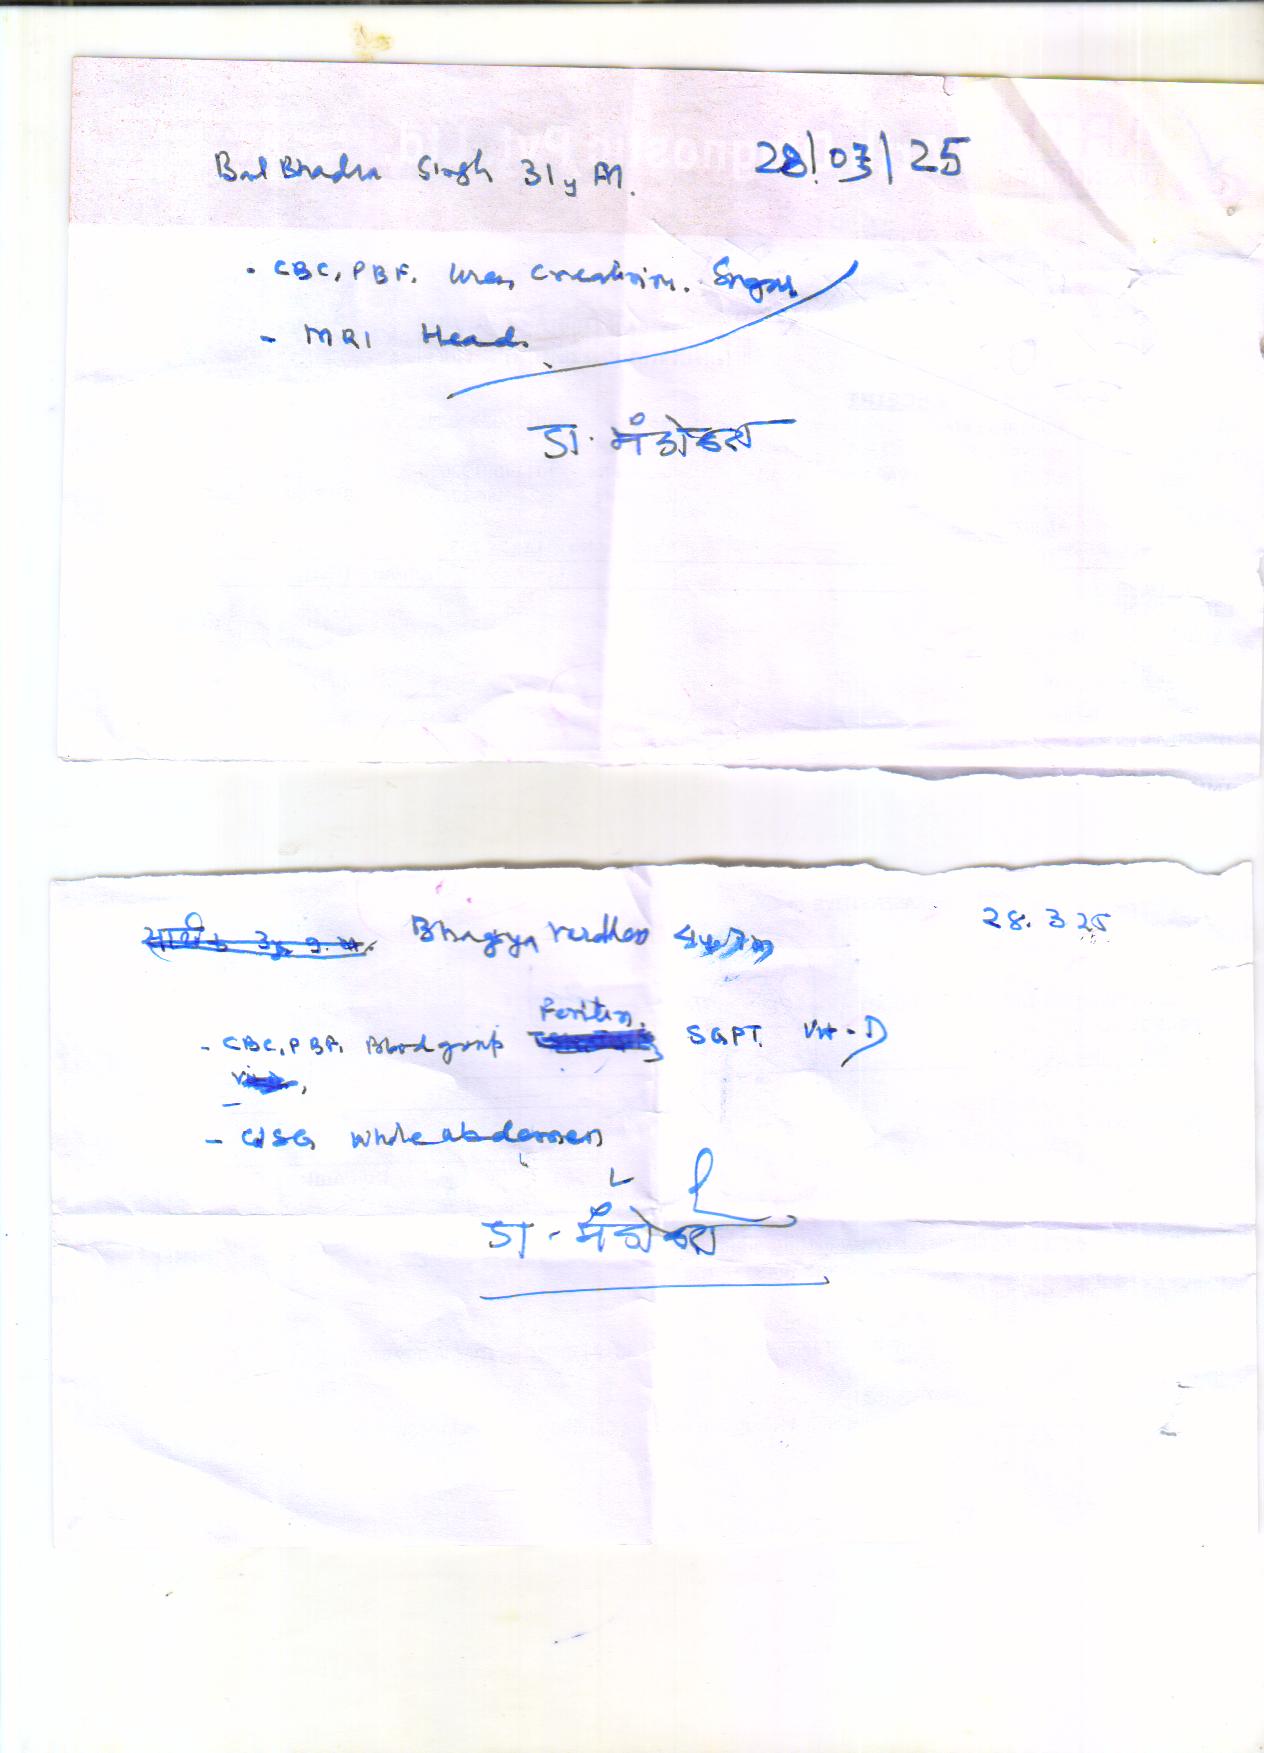 Bal Bhadra Singh 31 y M. 28/03/25
. CBC, PBF, Urea, Creatinin. Sugar
- MRI Head.
डा. मंडोवरा
Bhagya Vardhan 28.3.25
- CBC, PBF, Blood group Feritin, SGPT. Vit-D
- USG whole abdomen
डा - मंडोवरा